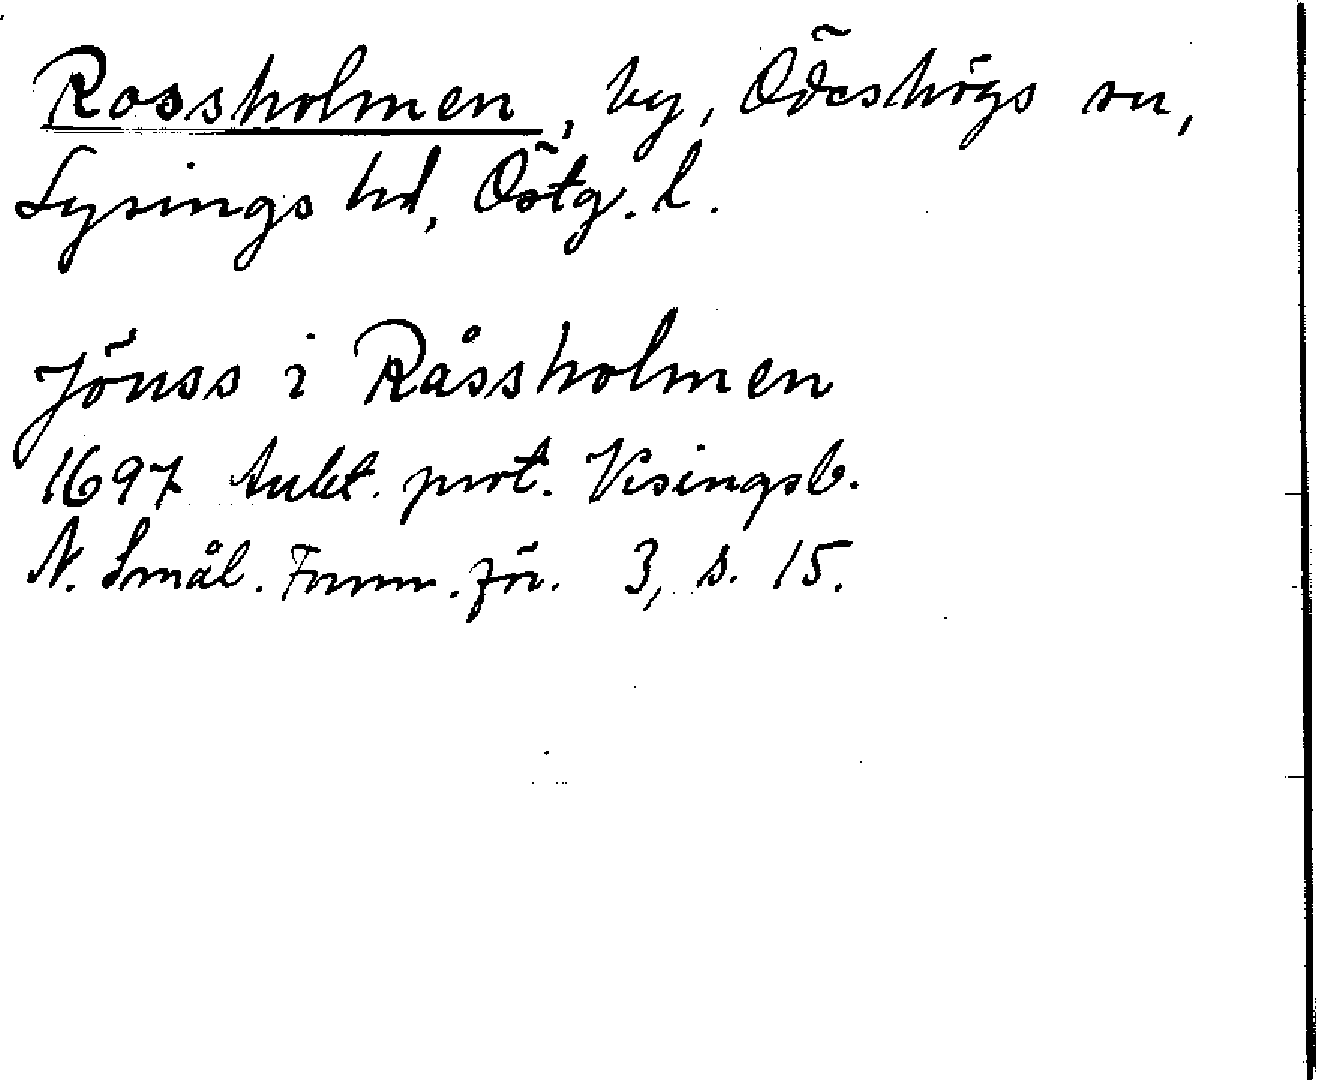 Rossholmen, by, Ödeshögs sn,
Lysings hd, Östg. l.
Jönss i Råssholmen
1697 Aukt. prot. Visingsb.
N. Smål. Fornm. för. 3, s. 15.